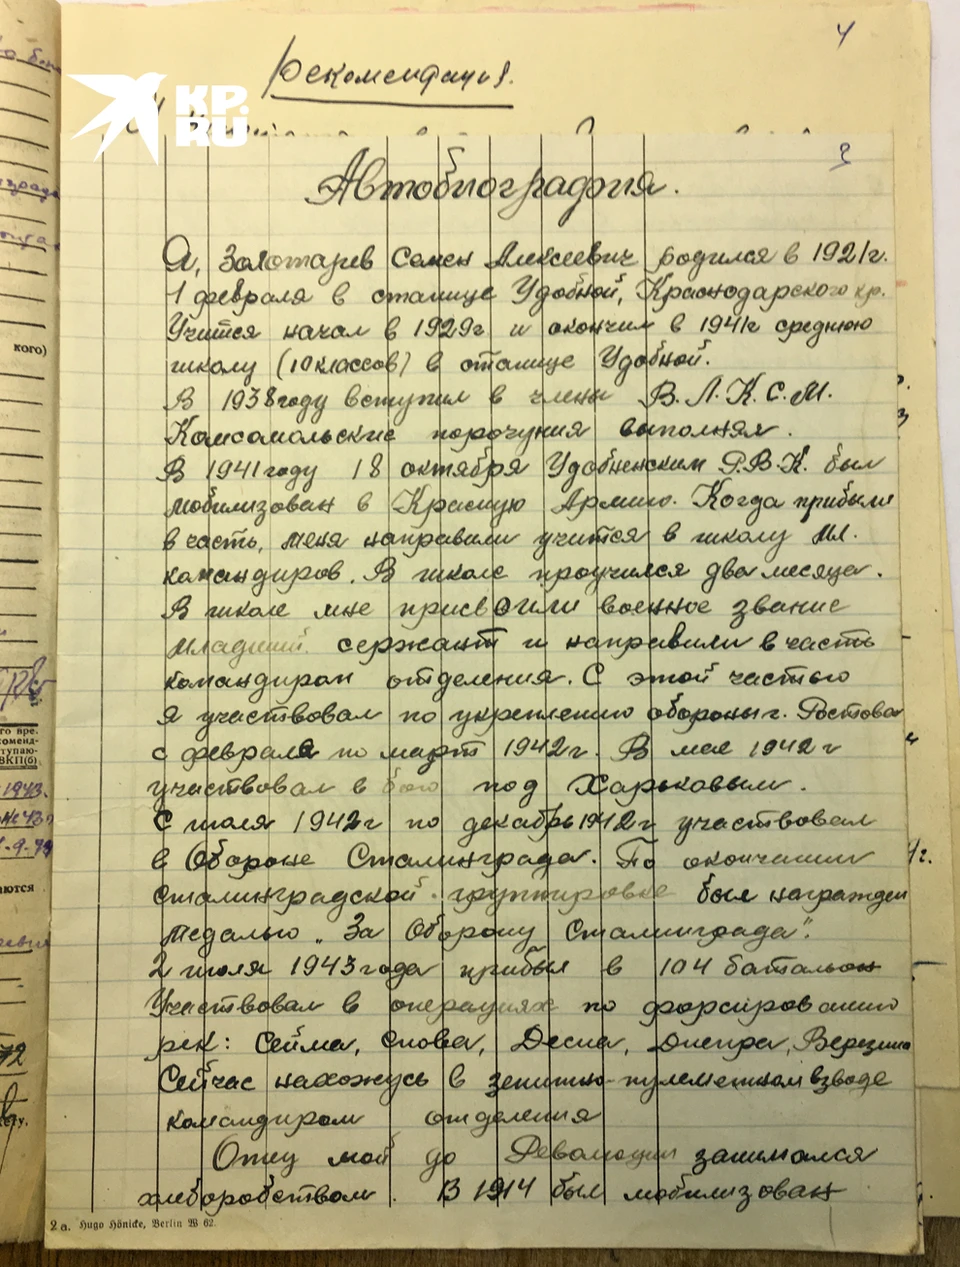 4
Рекомендация.
KP.
RU
3
Автобиография.
Я, Золотарев Семен Алексеевич родился в 1921г.
1 февраля в станице Удобной, Краснодарского кр.
Учится начал в 1929г и окончил в 1941г среднюю
школу (10 классов) в станице Удобной.
В 1938 году вступил в члены В.Л.К.С.М.
Комсомольские поручения выполнял.
В 1941 году 18 октября Удобненским Р.В.К. был
мобилизован в Красную Армию. Когда прибыли
в часть, меня направили учится в школу мл.
командиров. В школе проучился два месяца.
В школе мне присвоили военное звание
младший сержант и направили в часть
командиром отделения. С этой частью
я участвовал по укреплению обороны г. Ростова
с февраля по март 1942г. В мае 1942г
участвовал в бою под Харьковым.
С июля 1942г по декабрь 1942г участвовал
в Обороне Сталинграда. По окончании
сталинградской группировке был награжден
медалью „За Оборону Сталинграда".
2 июля 1943 года прибыл в 104 батальон
Участвовал в операциях по форсированию
рек: Сейма, Снова, Десна, Днепра, Березина
Сейчас нахожусь в зенитно-пулеметном взводе
командиром отделения
Отец мой до Революции занимался
хлеборобством. В 1914 был мобилизован
2 a. Hugo Hönicke, Berlin W 62.
кого)
го вре.
коменд-
тупаю-
ВКП(б)
1943.
аются
72